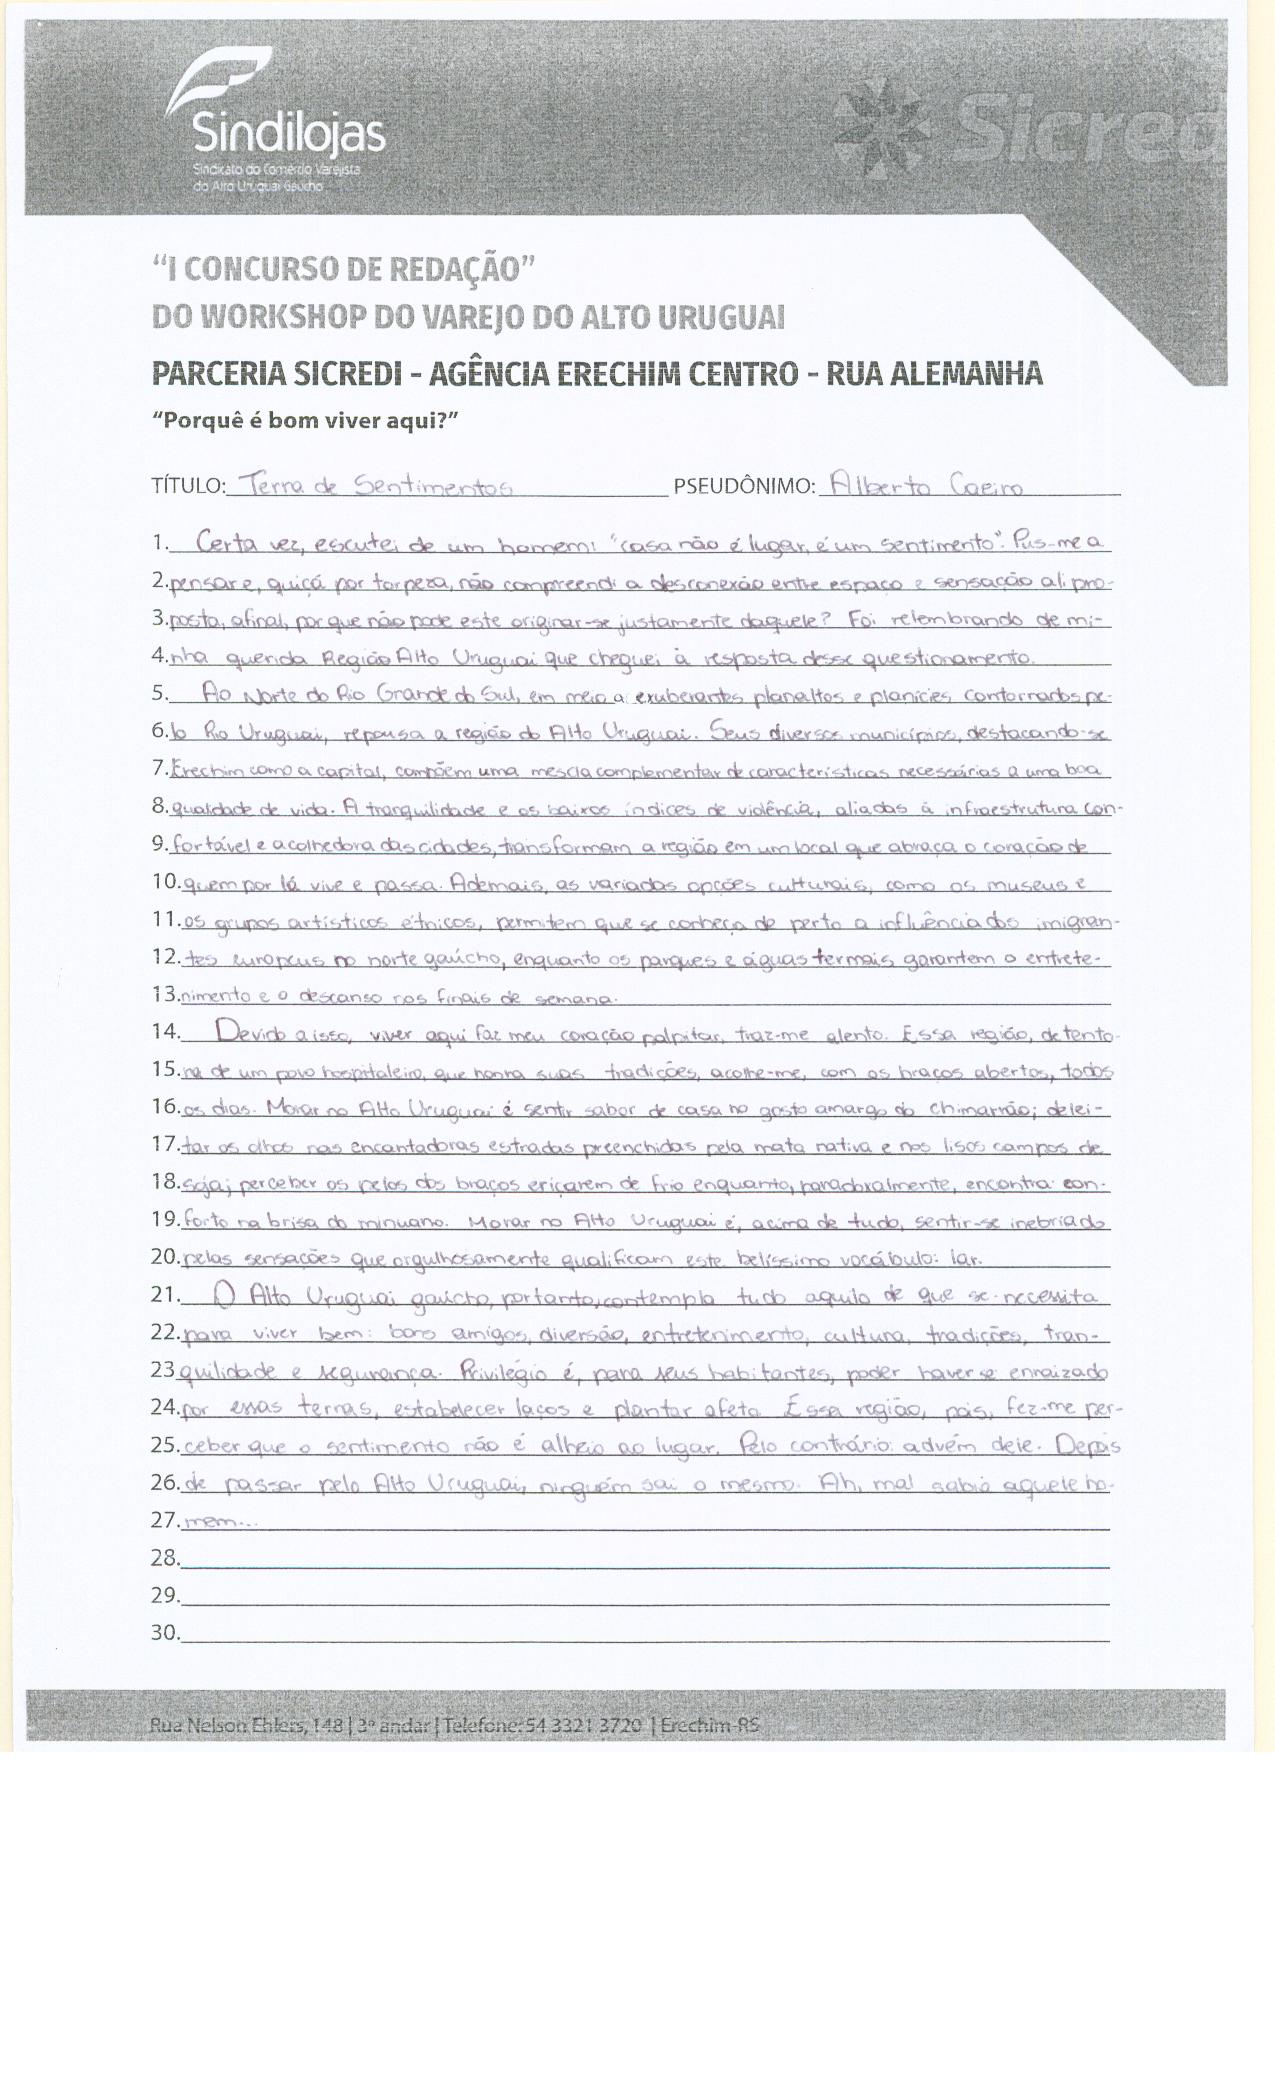 Sindilojas
Sindicato do Comércio Varejista
do Alto Uruguai Gaúcho
Sicred
“I CONCURSO DE REDAÇÃO”
DO WORKSHOP DO VAREJO DO ALTO URUGUAI
PARCERIA SICREDI - AGÊNCIA ERECHIM CENTRO - RUA ALEMANHA
“Porquê é bom viver aqui?”
TÍTULO: Terra de Sentimentos PSEUDÔNIMO: Alberto Caeiro
1. Certa vez, escutei de um homem: "casa não é lugar, é um sentimento". Pus-me a
2. pensar e, quiçá por torpeza, não compreendi a desconexão entre espaço e sensação ali pro-
3. posta, afinal, por que não pode este originar-se justamente daquele? Foi relembrando de mi-
4. nha querida Região Alto Uruguai que cheguei à resposta desse questionamento.
5. Ao Norte do Rio Grande do Sul, em meio a exuberantes planaltos e planícies contornados pe-
6. lo Rio Uruguai, repousa a região do Alto Uruguai. Seus diversos municípios, destacando-se
7. Erechim como a capital, compõem uma mescla complementar de características necessárias a uma boa
8. qualidade de vida. A tranquilidade e os baixos índices de violência, aliados à infraestrutura con-
9. fortável e acolhedora das cidades, transformam a região em um local que abraça o coração de
10. quem por lá vive e passa. Ademais, as variadas opções culturais, como os museus e
11. os grupos artísticos étnicos, permitem que se conheça de perto a influência dos imigran-
12. tes europeus no norte gaúcho, enquanto os parques e águas termais garantem o entrete-
13. nimento e o descanso nos finais de semana.
14. Devido a isso, viver aqui faz meu coração palpitar, traz-me alento. Essa região, detento-
15. ra de um povo hospitaleiro, que honra suas tradições, acolhe-me, com os braços abertos, todos
16. os dias. Morar no Alto Uruguai é sentir sabor de casa no gosto amargo do chimarrão; delei-
17. tar os olhos nas encantadoras estradas preenchidas pela mata nativa e nos lisos campos de
18. soja; perceber os pelos dos braços eriçarem de frio enquanto, paradoxalmente, encontra con-
19. forto na brisa do minuano. Morar no Alto Uruguai é, acima de tudo, sentir-se inebriado
20. pelas sensações que orgulhosamente qualificam este belíssimo vocábulo: lar.
21. O Alto Uruguai gaúcho, portanto, contempla tudo aquilo de que se necessita
22. para viver bem: bons amigos, diversão, entretenimento, cultura, tradições, tran-
23 quilidade e segurança. Privilégio é, para seus habitantes, poder haver se enraizado
24. por essas terras, estabelecer laços e plantar afeto. Essa região, pois, fez-me per-
25. ceber que o sentimento não é alheio ao lugar. Pelo contrário: advém dele. Depois
26. de passar pelo Alto Uruguai, ninguém sai o mesmo. Ah, mal sabia aquele ho-
27. mem...
28.
29.
30.
Rua Nelson Ehlers, 148 | 3º andar | Telefone: 54 3321 3720 | Erechim-RS